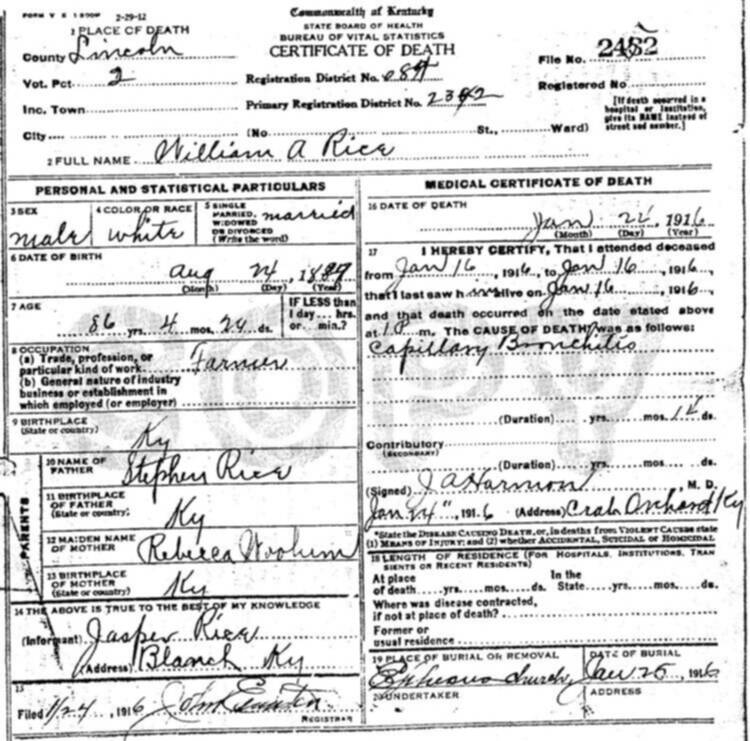 FORM V S 1 2-29-12
Commonwealth of Kentucky
STATE BOARD OF HEALTH
BUREAU OF VITAL STATISTICS
CERTIFICATE OF DEATH
1 PLACE OF DEATH
County Lincoln
Vot. Pct 2
Inc. Town
City (No St., Ward)
Registration District No. 684
Primary Registration District No. 2342
File No. 2452
Registered No
[If death occurred in a
hospital or institution,
give its NAME instead of
street and number.]
2 FULL NAME William A Rice
PERSONAL AND STATISTICAL PARTICULARS
3 SEX
male
4 COLOR OR RACE
white
5 SINGLE
MARRIED,
WIDOWED
OR DIVORCED
(Write the word)
married
6 DATE OF BIRTH
Aug 24, 18
(Month) (Day) (Year)
7 AGE
86 yrs. 4 mos. ds.
IF LESS than
1 day... hrs.
or... min.?
8 OCCUPATION
(a) Trade, profession, or
particular kind of work Farmer
(b) General nature of industry
business or establishment in
which employed (or employer)
9 BIRTHPLACE
(State or country)
Ky
PARENTS
10 NAME OF
FATHER
Stephen Rice
11 BIRTHPLACE
OF FATHER
(State or country)
Ky
12 MAIDEN NAME
OF MOTHER
Rebecca
13 BIRTHPLACE
OF MOTHER
(State or country)
Ky
14 THE ABOVE IS TRUE TO THE BEST OF MY KNOWLEDGE
(Informant) Jasper Rice
(Address) Blanch Ky
15
Filed 1/24, 1916
REGISTRAR
MEDICAL CERTIFICATE OF DEATH
16 DATE OF DEATH
Jan 22, 1916
(Month) (Day) (Year)
17 I HEREBY CERTIFY, That I attended deceased
from Jan 16, 1916, to Jan 16, 1916,
that I last saw him alive on Jan 16, 1916
and that death occurred on the date stated above
at 1 P m. The CAUSE OF DEATH was as follows:
Capillary Bronchitis
(Duration) yrs. mos. ds.
Contributory
(SECONDARY)
(Duration) yrs. mos. ds.
(Signed) J A Harmon, M. D.
Jan 24", 1916 (Address) Crab Orchard Ky
*State the DISEASE CAUSING DEATH, or, in deaths from VIOLENT CAUSES state
(1) MEANS OF INJURY; and (2) whether ACCIDENTAL, SUICIDAL OR HOMICIDAL
18 LENGTH OF RESIDENCE (FOR HOSPITALS, INSTITUTIONS, TRAN
SIENTS OR RECENT RESIDENTS)
At place
of death yrs. mos. ds.
In the
State yrs. mos. ds.
Where was disease contracted,
if not at place of death?
Former or
usual residence
19 PLACE OF BURIAL OR REMOVAL
Ephesus church
DATE OF BURIAL
Jan 25, 1916
20 UNDERTAKER
ADDRESS
COPY